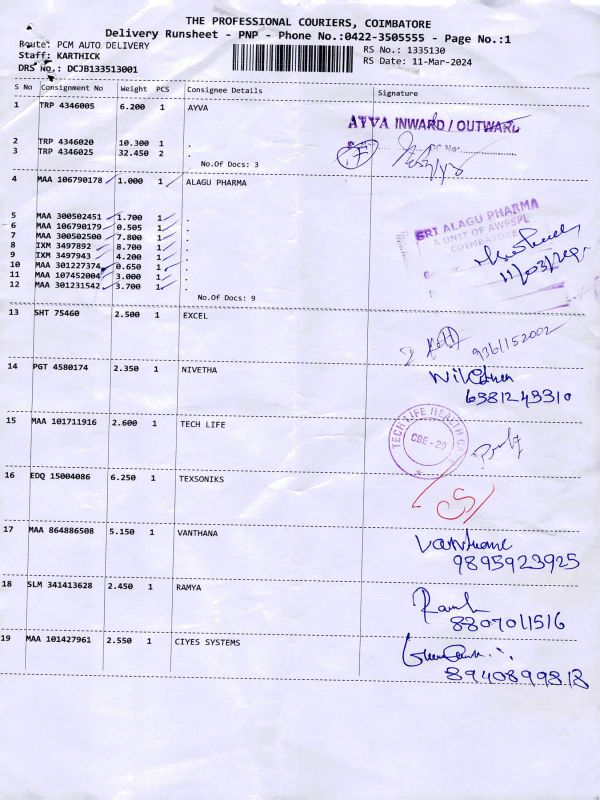 THE PROFESSIONAL COURIERS, COIMBATORE
Delivery Runsheet - PNP - Phone No.:0422-3505555 - Page No.:1
Route: PCM AUTO DELIVERY
RS No.: 1335130
Staff: KARTHICK
RS Date: 11-Mar-2024
DRS No.: DCJB133513001
S No Consignment No Weight PCS Consignee Details Signature
1 TRP 4346005 6.200 1 AYVA
AYVA INWARD / OUTWARD
2 TRP 4346020 10.300 1 .
3 TRP 4346025 32.450 2 .
No.Of Docs: 3
4 MAA 106790178 1.000 1 ALAGU PHARMA
5 MAA 300502451 1.700 1 .
6 MAA 106790179 0.505 1 .
7 MAA 300502500 7.800 1 .
8 IXM 3497892 8.700 1 .
9 IXM 3497943 4.200 1 .
10 MAA 301227374 0.650 1 .
11 MAA 107452004 3.000 1 .
12 MAA 301231542 3.700 1 .
No.Of Docs: 9
SRI ALAGU PHARMA
A UNIT OF AWPSPE
COIMBATORE
13 SHT 75460 2.500 1 EXCEL
9361152002
14 PGT 4580174 2.350 1 NIVETHA
6381243310
15 MAA 101711916 2.600 1 TECH LIFE
TECH LIFE HEALTH CARE
CBE - 29
16 EDQ 15004086 6.250 1 TEXSONIKS
17 MAA 864886508 5.150 1 VANTHANA
9895923925
18 SLM 341413628 2.450 1 RAMYA
8807011516
19 MAA 101427961 2.550 1 CIYES SYSTEMS
8940899818